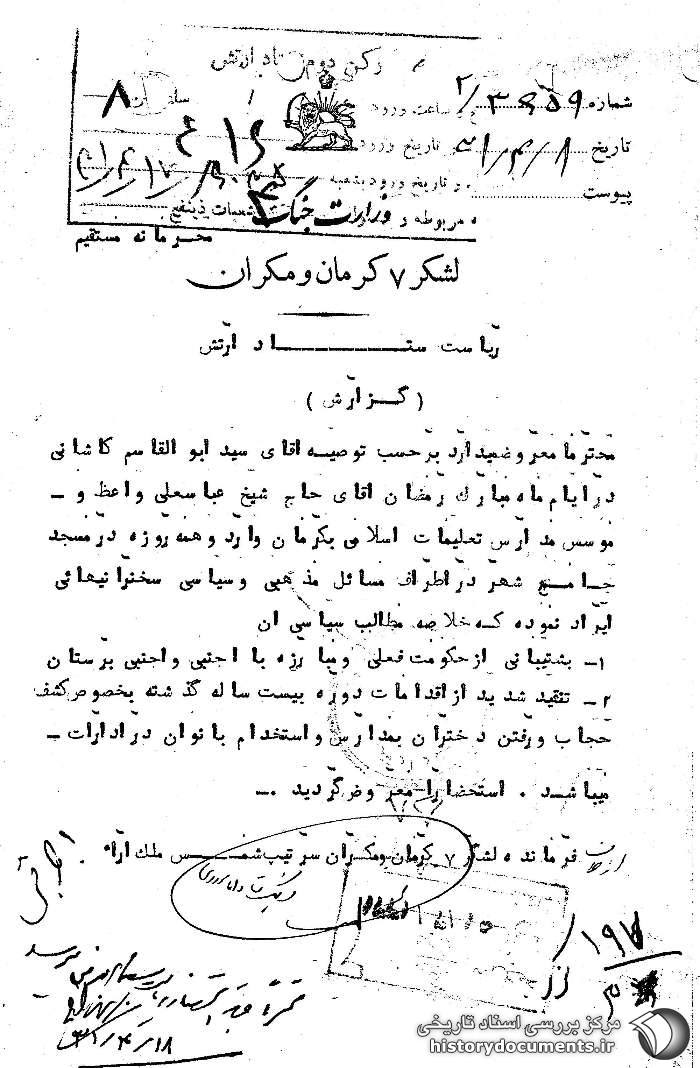 رکن دوم ستاد ارتش
شماره ۲/۳۶۵۹
ساعت ورود ۸
تاریخ ۳۱/۴/۸
تاریخ ورود
پیوست
و تاریخ ورود بشعبه
وزارت جنگ
مربوطه و شعبات ذینفع
محرمانه مستقیم
لشکر ۷ کرمان و مکران
ریاست ستاد ارتش
(گزارش)
محترما معروضمیدارد برحسب توصیه اقای سید ابوالقاسم کاشانی
در ایام ماه مبارک رمضان اقای حاج شیخ عباسعلی واعظ و ـ
موسس مدارس تعلیمات اسلامی بکرمان وارد و همه روزه در مسجد
جامع شهر در اطراف مسائل مذهبی و سیاسی سخنرانیهائی
ایراد نموده که خلاصه مطالب سیاسی ان
۱ـ پشتیبانی از حکومت فعلی و مبارزه با اجنبی و اجنبی پرستان
۲ـ تنقید شدید از اقدامات دوره بیست ساله گذشته بخصوص کشف
حجاب و رفتن دختران بمدارس و استخدام بانوان در ادارات ـ
میباشد . استحضارا معروض گردید .ـ
از طرف فرمانده لشگر ۷ کرمان و مکران سرتیپ شمس ملک آراء
۱۹۷
۳۱/۴/۱۸
مرکز بررسی اسناد تاریخی
historydocuments.ir